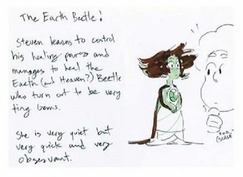 The Earth Beetle!
Steven learns to control
his healing powers and
manages to heal the
Earth (and Heaven?) Beetle
who turn out to be very
tiny Gems.
She is very quiet but
very quick and very
observant.